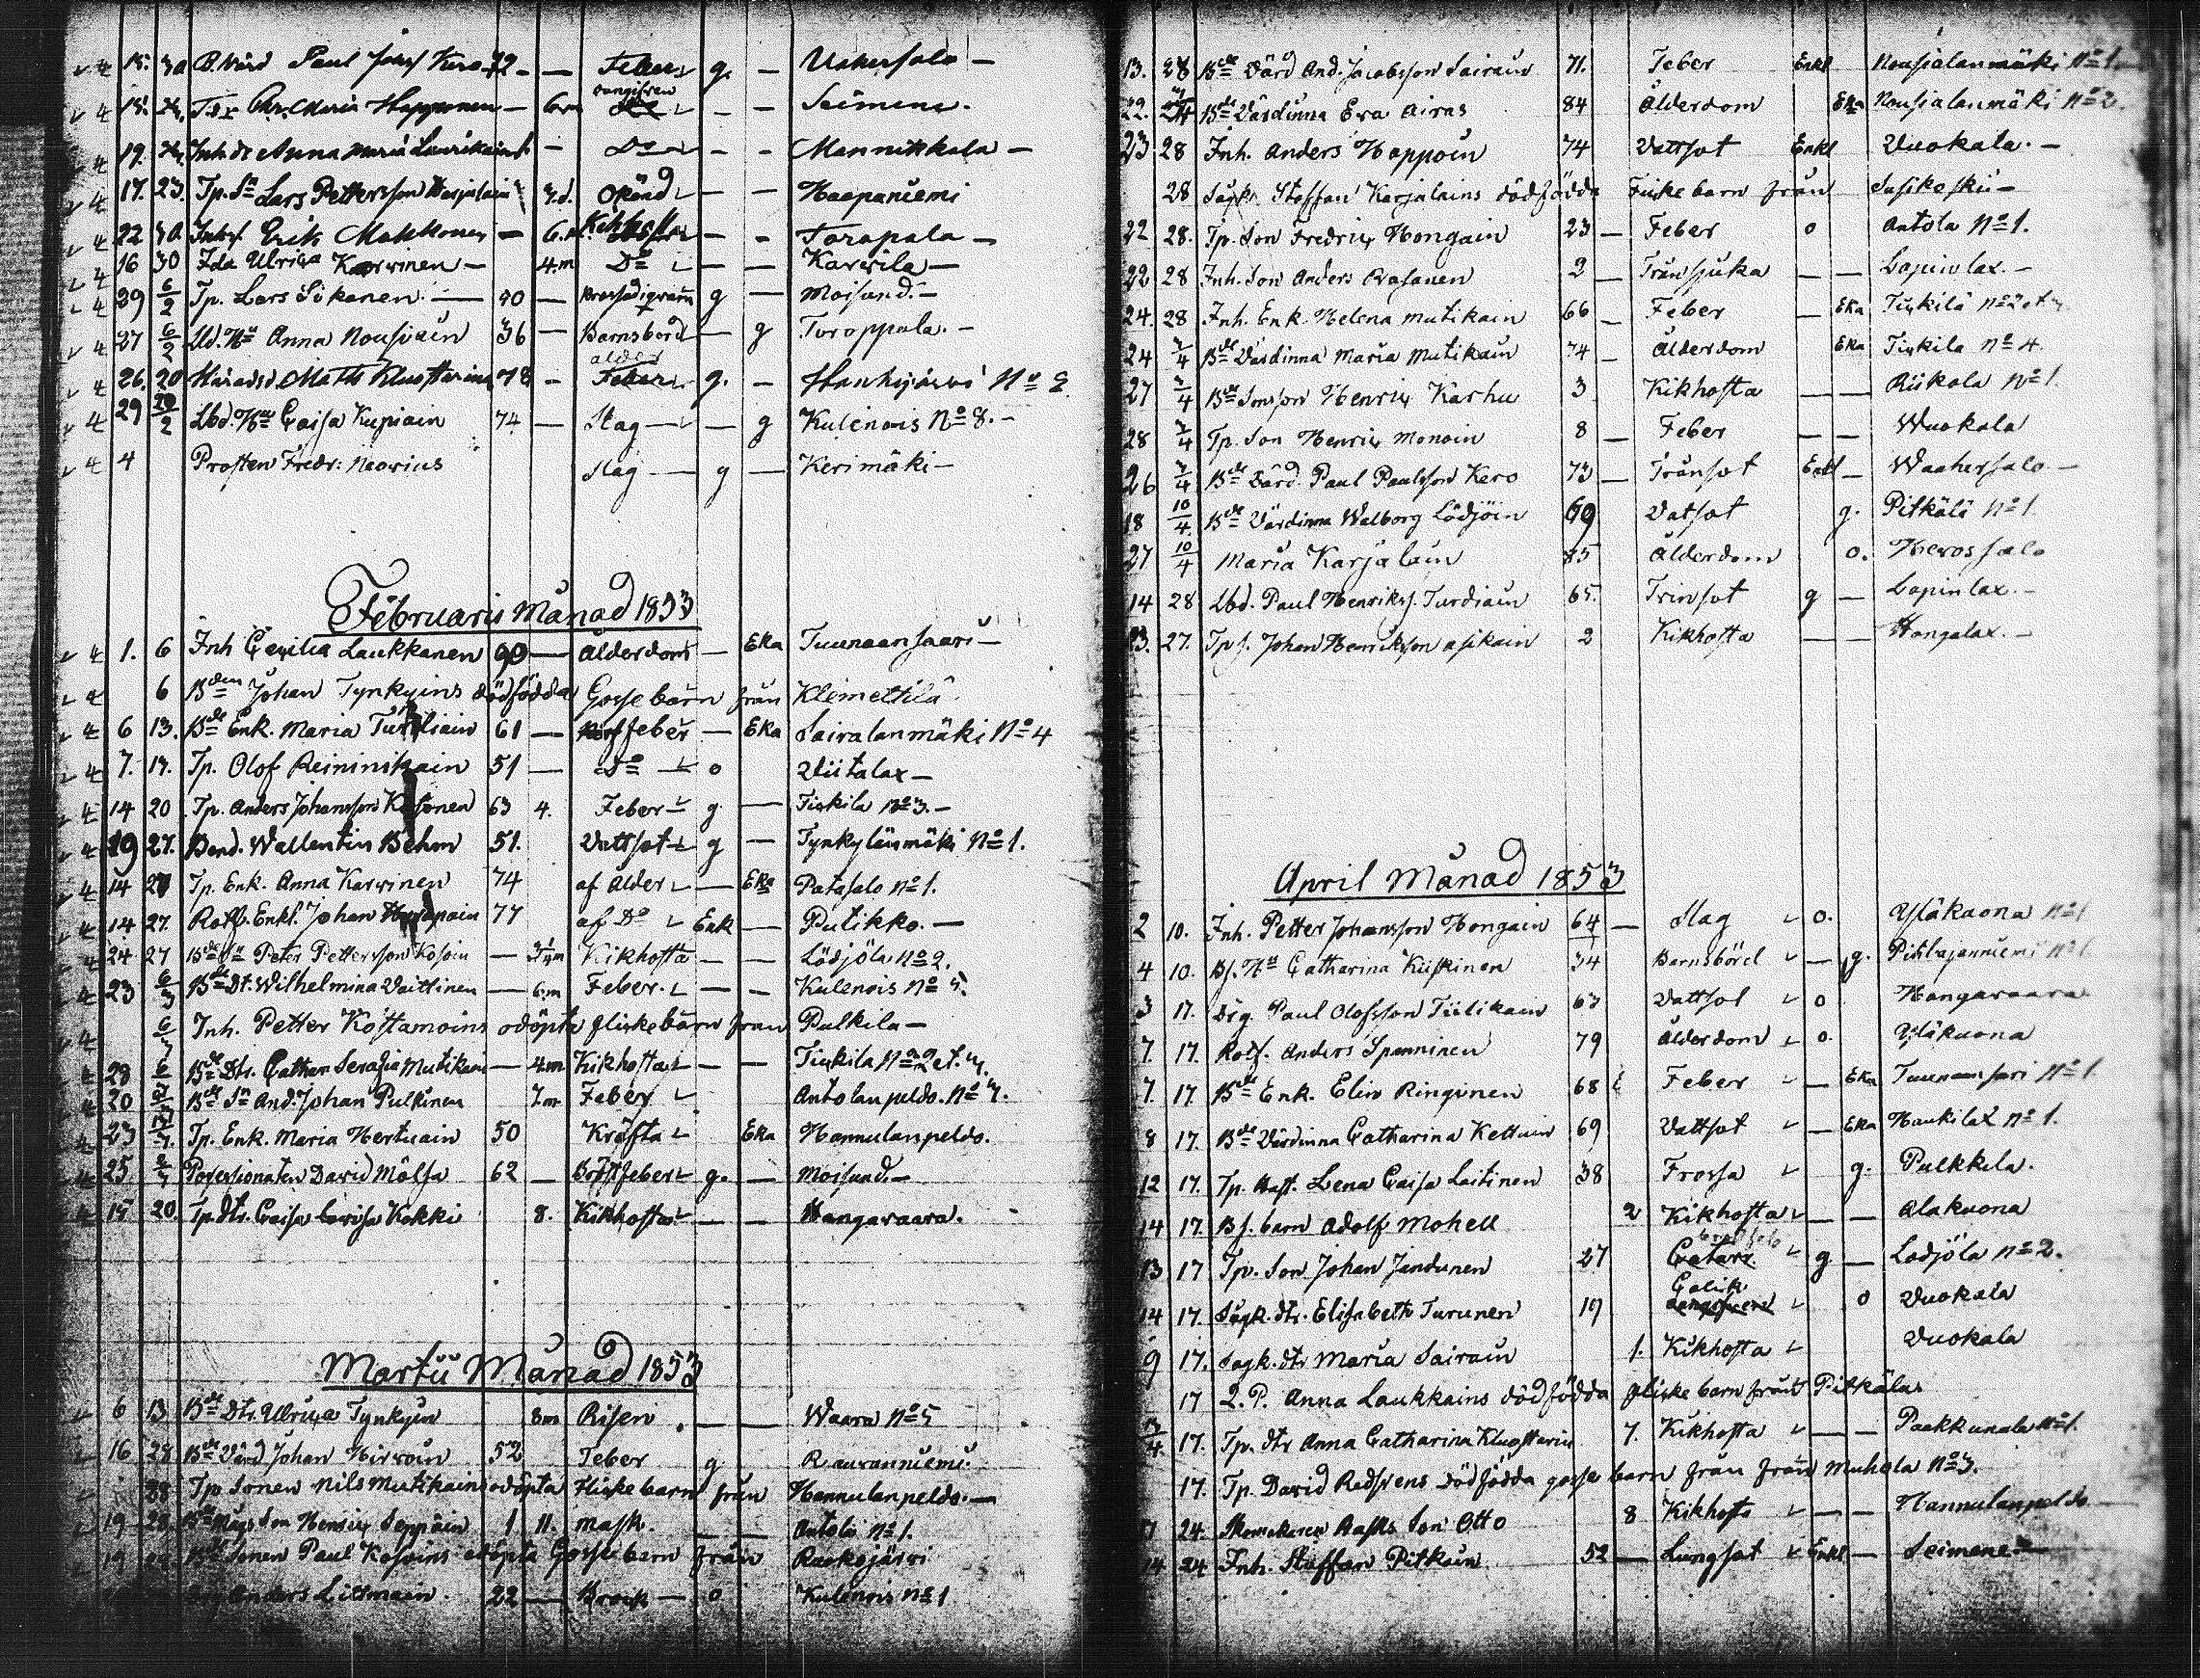 15. 30 B. Wärd Paul Jönsf Kero 72 — — Feber g. — Uakersalo —
18. Tdr Chr. Maria Happonen — 6m Seimene.
19. Inh. dt Anna Maria Laurikain — Do — — Mannikkala —
17. 23. Tp. Sn Lars Pettersson Karjalain 3.d. Okänd — — Haapaniemi
22 30 Inhs Erik Makkonen — 6.m. Kikhosta — — Tarapala —
16 30 Ida Ulrica Karvinen — 4.m Do — — Karvila —
29 6/2 Tp. Lars Sikanen — 40 — g — Moisund. —
27 6/2 Ud. Hu Anna Nousiain 36 — Barnsbörd — g Toroppala. —
26. 20 Häradsd. Matts Klostterius 78 — ålder Feber g. — Hanhijärvi No 2
29 20/2 Lbd. Hu Caisa Kupiain 74 — Slag — — g Kulenois No 8. —
4 Prosten Fredr. Neovius Slag — g — Kerimäki —
Februarii Månad 1853
1. 6 Inh Cecilia Laukkanen 90 — Ålderdom — Eka Tuunaansaari —
6 Bden Johan Tynkyins dödfödda Gosse barn från Klemettilä
6 13. Bde Enk. Maria Turtiain 61 — feber — Eka Sairalanmäki No 4
7. 17. Tp. Olof Reininkain 51 — Do — o Viitalax —
14 20 Tp. Anders Johansson Kosonen 63 4. Feber g. — Tiukila No 3. —
19 27. Bend. Wallentin Behm 51. Vattsot g — Tynkylänmäki No 1.
14 27 Tp. Enk. Anna Karvinen 74 af Ålder — Eka Patasalo No 1.
14 27. Rotf. Enkl. Johan 77 af Do Enk — Putikko. —
24 27 Bde Sn Peter Pettersson Kosoin — Kikhosta — — Lödjöla No 2.
23 6/3 Bde Dt. Wilhelmina Vaittinen — 6.m Feber. — — Kulenois No 5.
6/3 Inh. Petter Kostamoins odöpta flickebarn från Pulkila —
28 6/3 Bde Dtr. Cathar. Serafia Mutikain — 4m Kikhosta — — Tiukila No 2 et 4.
20 Bde Sn And. Johan Pulkinen 7.m Feber Antolanpeldo. No 4.
23 Tp. Enk. Maria Hertuain 50 Kräfta Eka Hannulanpeldo.
25. Possessionaten David Mölsä 62 — Bröstfeber g. — Moisund —
15 20. Tp. dtr. Caisa Lovisa Kokki 8. Kikhosta — — Hangavaara.
Martii Månad 1853
6 13 Bde Dtr. Ulrica Tynkyin 8m Risen — — Waara No 5
16 28 Bde Värd Johan Hirvoin 52 Feber g Rauvanniemi.
28 Tp Sonen Nils Mutikains odöpta flickebarn från Hannulanpeldo. —
19 28. Bde Mågs Son Henric Seppäin 1 11. mask. — — Antola No 1.
19 Bde Sonen Paul Kosoins odöpta Gosse barn från Raskojärvi
Anders Litmain. 22 — Brock — o Kulenois No 1
13. 28 Bde Värd And. Jacobsson Sairain 71. Feber Enkl Nousialanmäki No 1.
22. Bde Värdinna Eva Airas 84 Ålderdom Eka Nousialanmäki No 2.
23 28 Inh. Anders Happoin 74 Vattsot Enkl Vuokala. —
28 Sägk. Staffan Karjalains dödfödda Flickebarn från
22 28. Tp. Son Fredric Hongain 23 — Feber o Antola No 1.
22 28 Inh. Son Anders Rasanen 2 — Trånsjuka — — Lapinlax. —
24. 28 Inh. Enk. Helena Mutikain 66 — Feber — Eka Tiukilä No 2 et 4
24 3/4 Bde Värdinna Maria Mutikain 74 — Ålderdom Eka Tiukila No 4
27 3/4 Bde Sonson Henric Karhu 3 Kikhosta — — Riikola No 1.
28 3/4 Tp. Son Henric Monoin 8 — Feber — — Wuokala
26 3/4 Bde Värd. Paul Paulsson Kero 73 — Trånsot Enkl — Waahersalo —
18 10/4 Bde Värdinna Walborg Lödjöin 69 Vatsot g. Pitkälä No 1
27 10/4 Maria Karjalain 85 Ålderdom o. Herossalo
14 28 Lbd. Paul Henrikss. Turdiain 65. Trinsot g — Lapinlax. —
23. 27. Tp s. Johan Henriksson Asikain 2 Kikhosta — — Hongalax. —
April Månad 1853
2 10. Inh. Petter Johansson Hongain 64 — Slag o. Yläkuona No 1
4 10. Bs. Hu Catharina Kiiskinen 34 Barnsbörd — g. No 1
3 17. Drg Paul Olofsson Tiilikain 63 Vattsot o Hangavaara
7. 17. Rotf. Anders Spanninen 79 Ålderdom o. Yläkuona
7. 17 Bde Enk. Elin Ringinen 68 Feber — Eka Tuunansari No 1
8 17. Bde Värdinna Catharina Kettuin 69 Vattsot — Eka Haukilax No 1.
12 17. Tp. Hust. Lena Caisa Laitinen 38 Frossa g. Pulkkila.
14 17. Bs. barn Adolf Mohell 2 Kikhosta — — Alakuona
13 17 Tp. Son Johan Jandunen 27 g — Lodjöla No 2.
14 17. Sägk. dtr. Elisabeth Turunen 19 Colik o Vuokala
9 17. Sagk. dtr Maria Sairain 1. Kikhosta Vuokala
17 Q. P. Anna Laukkains dödfödda flicke barn från Pitkälä
4. 17. Tp. dtr Anna Catharina Klosterius 7. Kikhosta — — Paakkunala No 1.
17. Tp. David Radstens dödfödda gosse barn från från Muhola No 3.
24. Skomakaren Rasks Son Otto 8 Kikhosta — — Hannulanpeldo
14 24 Inh. Staffan Pitkäin 52 — Lungsot Enkl — Seimene —